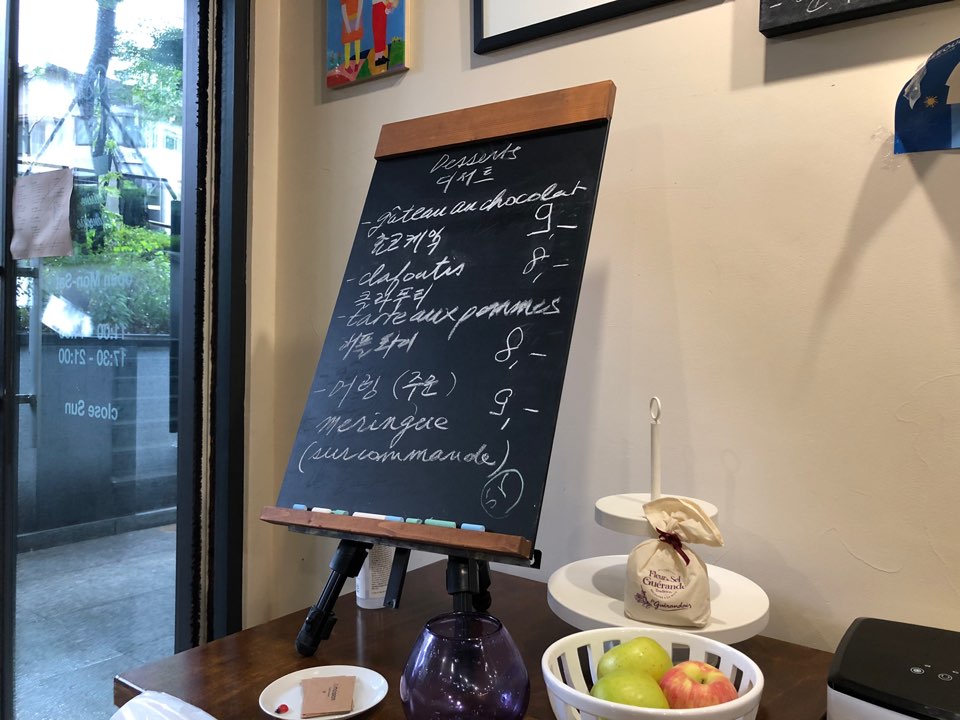 Desserts
디저트
- gâteau au chocolat
쵸코케익
9,-
- clafoutis
8,-
클라푸티
- tarte aux pommes
애플파이
8,-
- 머랭 (주문)
9,-
meringue
(sur commande)
Open Mon-Sat
17:30 - 21:00
close Sun
Fleur de Sel
de Guérande
Le Guérandais